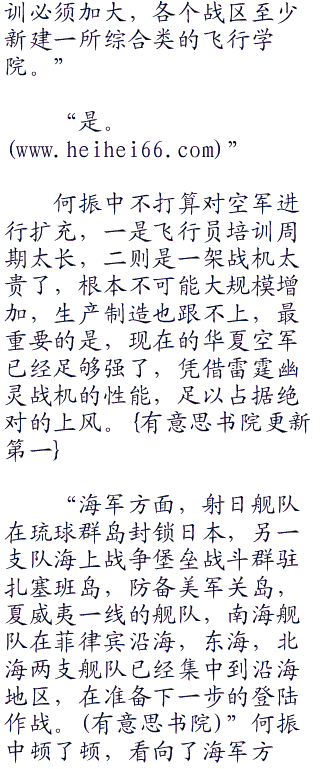 训必须加大，各个战区至少
新建一所综合类的飞行学
院。”
“是。
(www.heihei66.com)”
何振中不打算对空军进
行扩充，一是飞行员培训周
期太长，二则是一架战机太
贵了，根本不可能大规模增
加，生产制造也跟不上，最
重要的是，现在的华夏空军
已经足够强了，凭借雷霆幽
灵战机的性能，足以占据绝
对的上风。{有意思书院更新
第一}
“海军方面，射日舰队
在琉球群岛封锁日本，另一
支队海上战争堡垒战斗群驻
扎塞班岛，防备美军关岛，
夏威夷一线的舰队，南海舰
队在菲律宾沿海，东海，北
海两支舰队已经集中到沿海
地区，在准备下一步的登陆
作战。(有意思书院)”何振
中顿了顿，看向了海军方